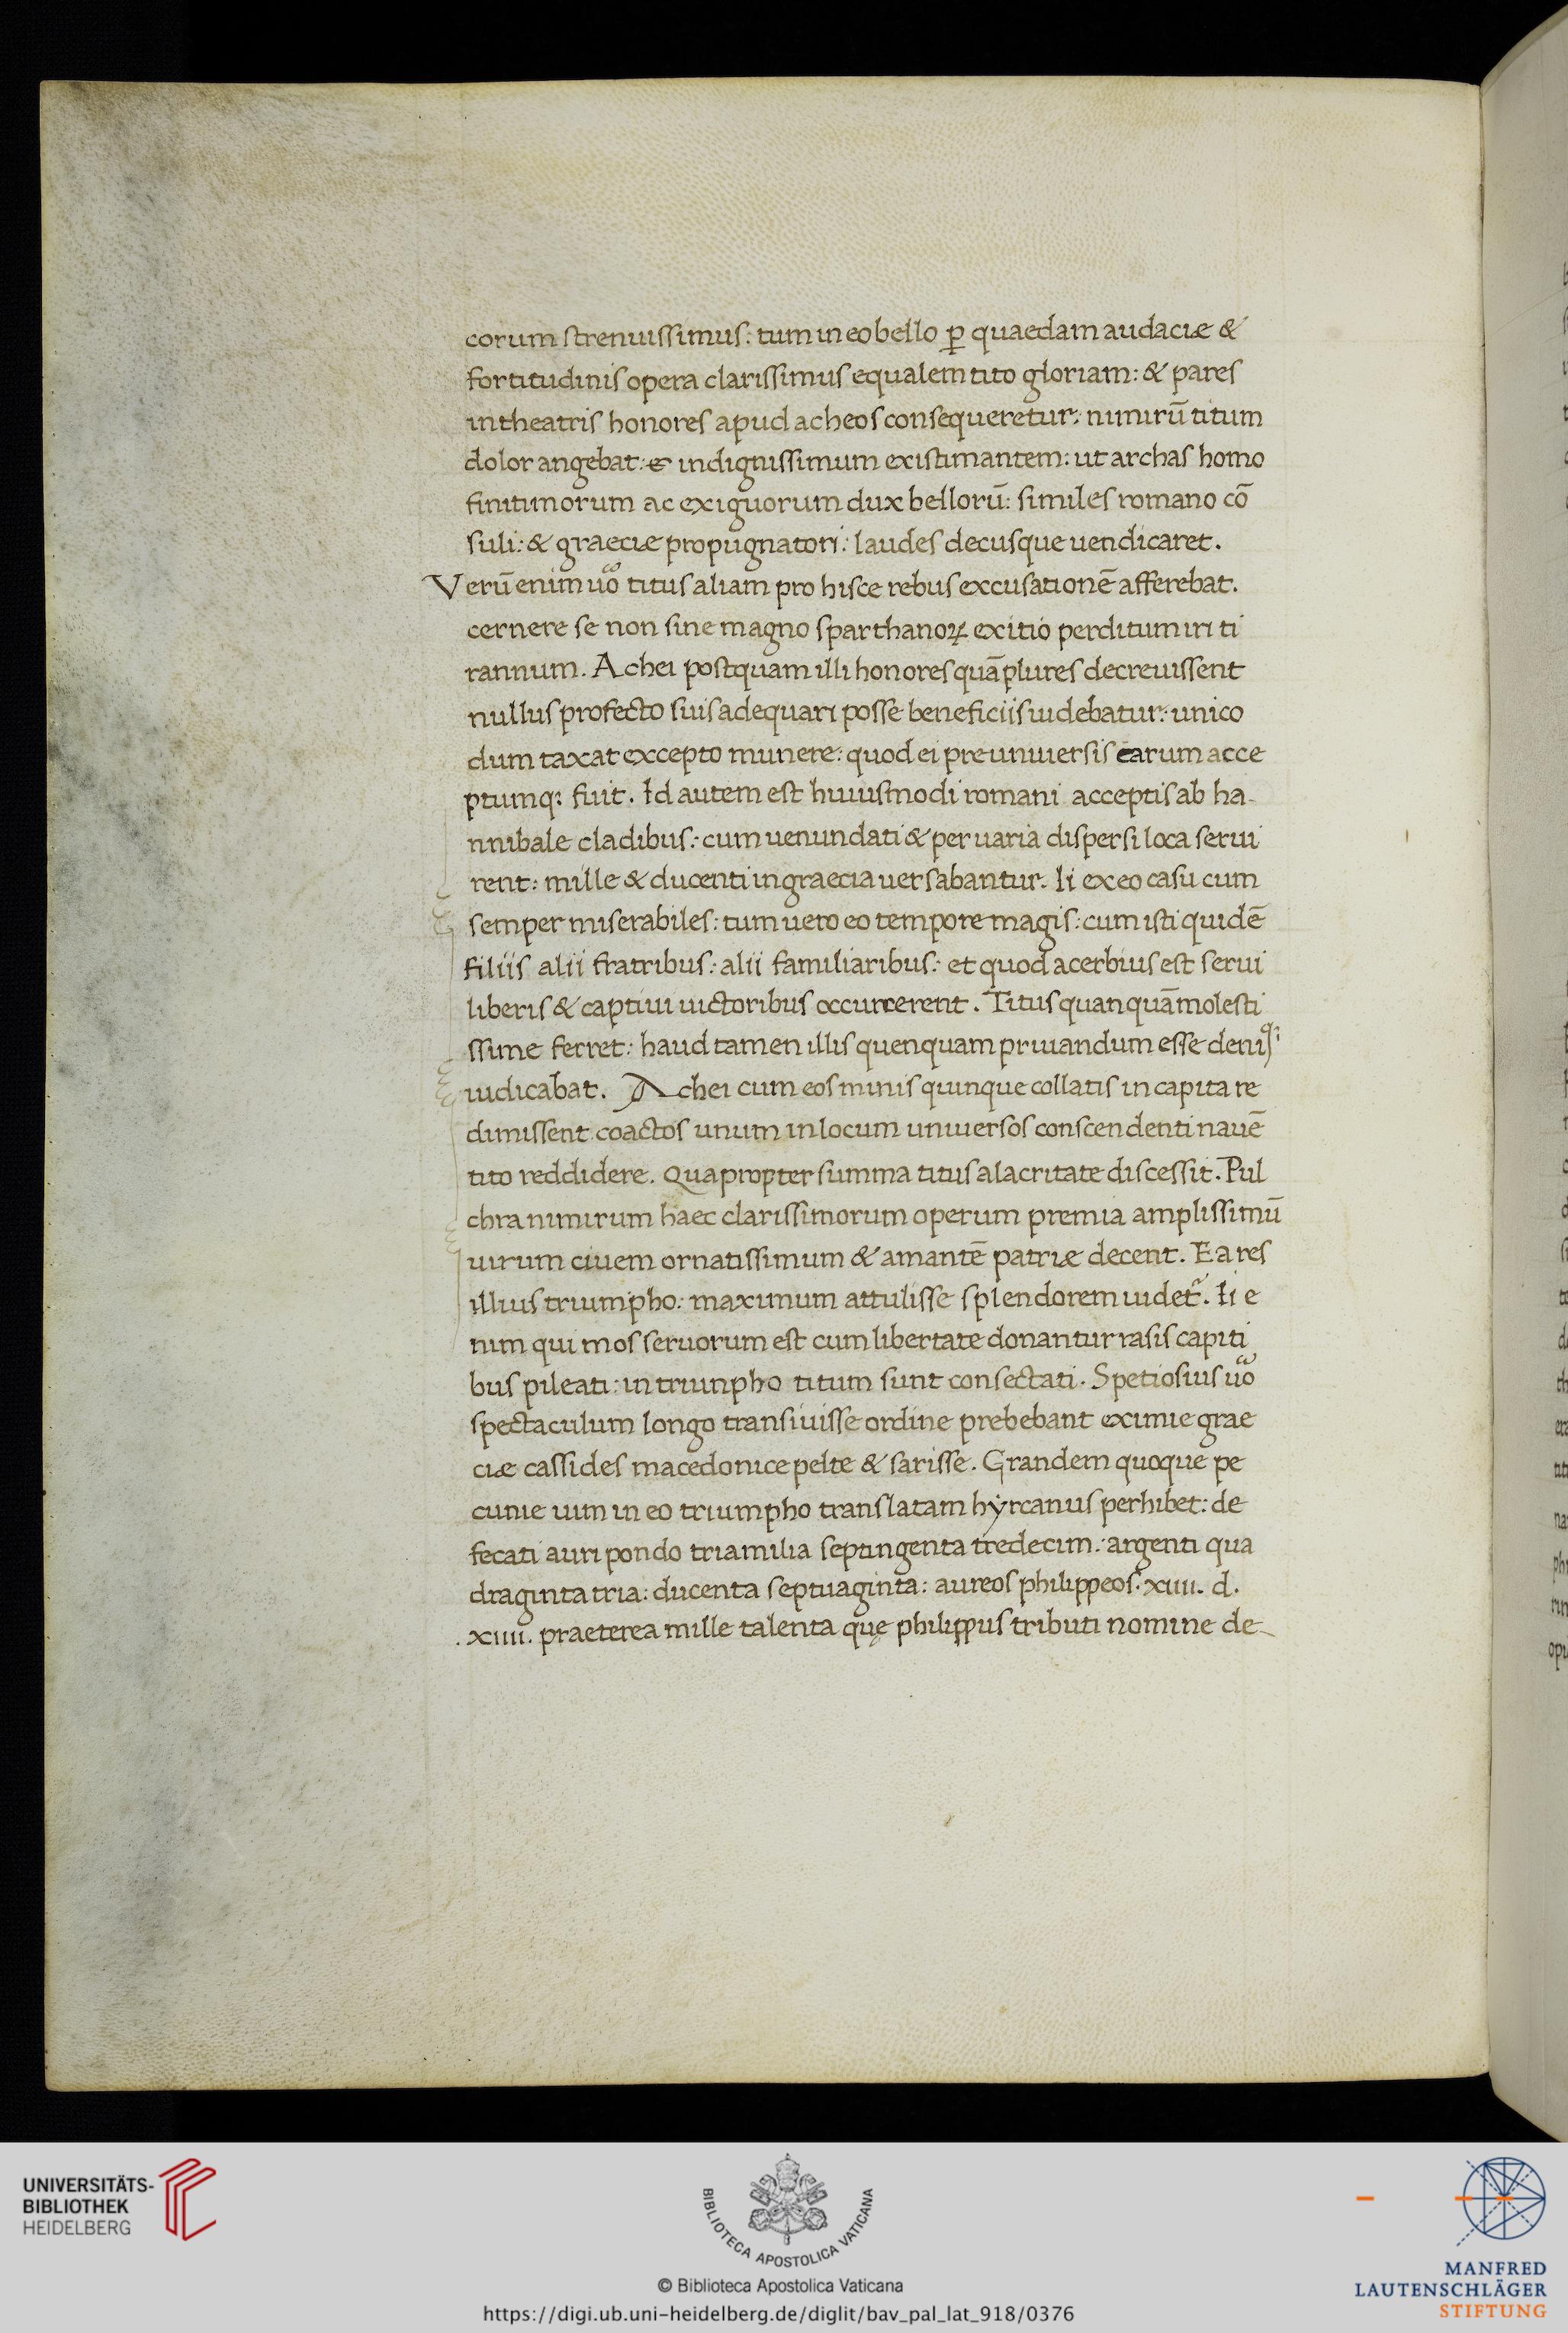 corum strenuissimus: tum in eo bello ꝑ quaedam audaciæ &
fortitudinis opera clarissimus equalem tito gloriam: & pares
in theatris honores apud acheos consequeretur: nimirū titum
dolor angebat: & indignissimum existimantem: ut archas homo
finitimorum ac exiguorum dux bellorū: similes romano cō
suli: & graeciæ propugnatori: laudes decusque uendicaret.
Verū enim uo titus aliam pro hisce rebus excusationē afferebat.
cernere se non sine magno sparthanoꝝ exitio perditum iri ti
rannum. Achei postquam illi honores quāplures decreuissent
nullus profecto suis adequari posse beneficiis uidebatur: unico
dum taxat excepto munere: quod ei pre uniuersis carum acce
ptumq; fuit. Id autem est huiusmodi romani acceptis ab ha-
nnibale cladibus: cum uenundati & per uaria dispersi loca serui
rent: mille & ducenti in graecia uersabantur. Ii ex eo casu cum
semper miserabiles: tum uero eo tempore magis: cum isti quidē
filiis alii fratribus: alii familiaribus: et quod acerbius est serui
liberis & captiui uictoribus occurrerent. Titus quanquā molesti
ssime ferret: haud tamen illis quenquam priuandum esse deniq;
iudicabat. Achei cum eos minis quinque collatis in capita re
dimissent coactos unum in locum uniuersos conscendenti nauē
tito reddidere. Quapropter summa titus alacritate discessit. Pul
chra nimirum haec clarissimorum operum premia amplissimū
uirum ciuem ornatissimum & amantē patriæ decent. Ea res
illius triumpho: maximum attulisse splendorem uidet᷑. Ii e
nim qui mos seruorum est cum libertate donantur rasis capiti
bus pileati: in triunpho titum sunt consectati. Spetiosius uo
spectaculum longo transiuisse ordine prebebant eximie grae
ciæ cassides macedonice pelte & sarisse. Grandem quoque pe
cunie uim in eo triumpho translatam hyrcanus perhibet: de
fecati auri pondo triamilia septingenta tredecim: argenti qua
draginta tria: ducenta septuaginta: aureos philippeos. xiiii. d.
.xiiii. praeterea mille talenta quę philippus tributi nomine de
UNIVERSITÄTS-
BIBLIOTHEK
HEIDELBERG
BIBLIOTECA APOSTOLICA VATICANA
© Biblioteca Apostolica Vaticana
https://digi.ub.uni-heidelberg.de/diglit/bav_pal_lat_918/0376
MANFRED
LAUTENSCHLÄGER
STIFTUNG